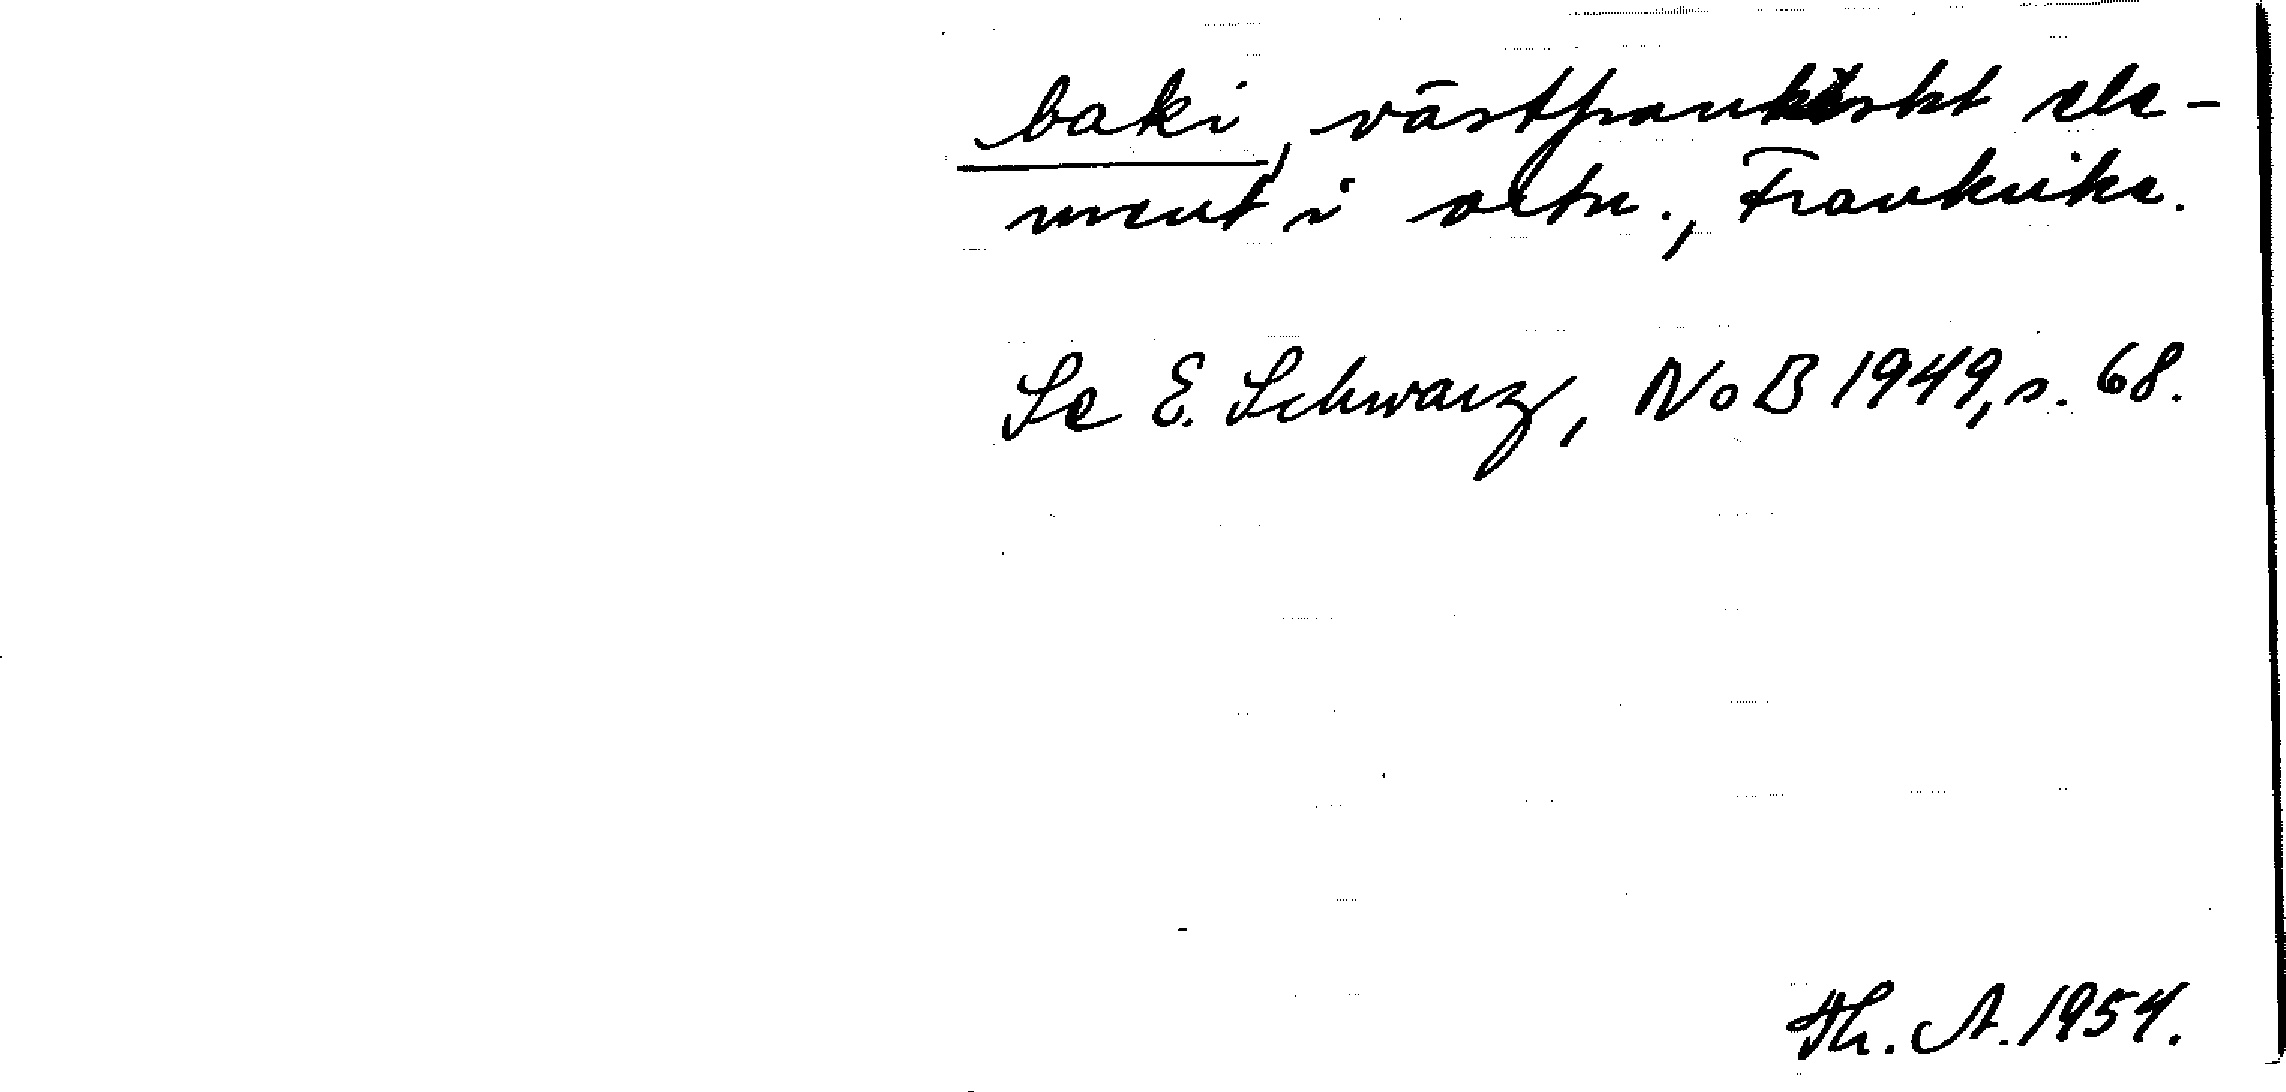 baki, västfrankiskt ele-
ment i ortn., Frankrike.
Se E. Schwarz, NoB 1949, s. 68.
Th. A. 1954.